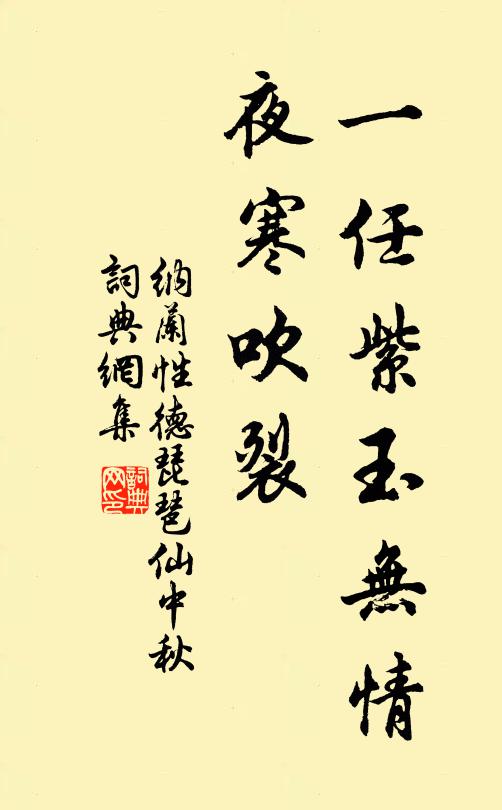 一任紫玉無情
夜寒吹裂
納蘭性德琵琶仙中秋
詞典網集
詞典
网印